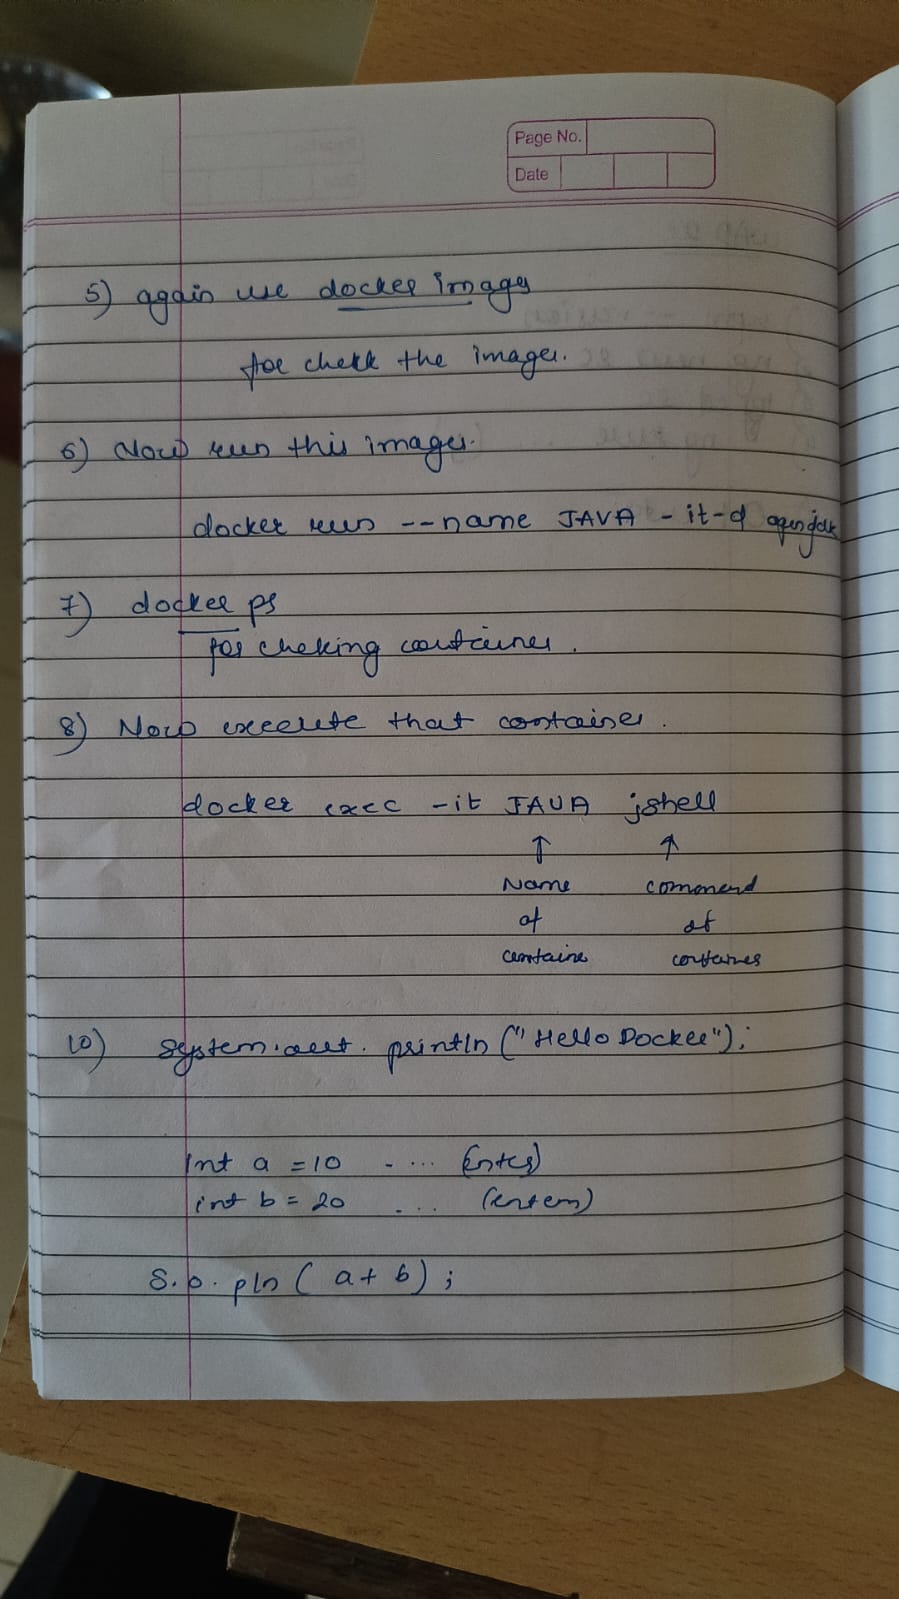 Page No.
Date
5) again use docker images
for chekk the images.
6) Now run this images.
docker run --name JAVA -it -d openjdk
7) docker ps
for cheking container.
8) Now execute that container.
docker exec -it JAVA jshell
↑ ↑
Name command
of of
containe container
10) System.out.println("Hello Docker");
int a = 10 - ... (Enter)
int b = 20 ... (enter)
S.o.pln(a+b);